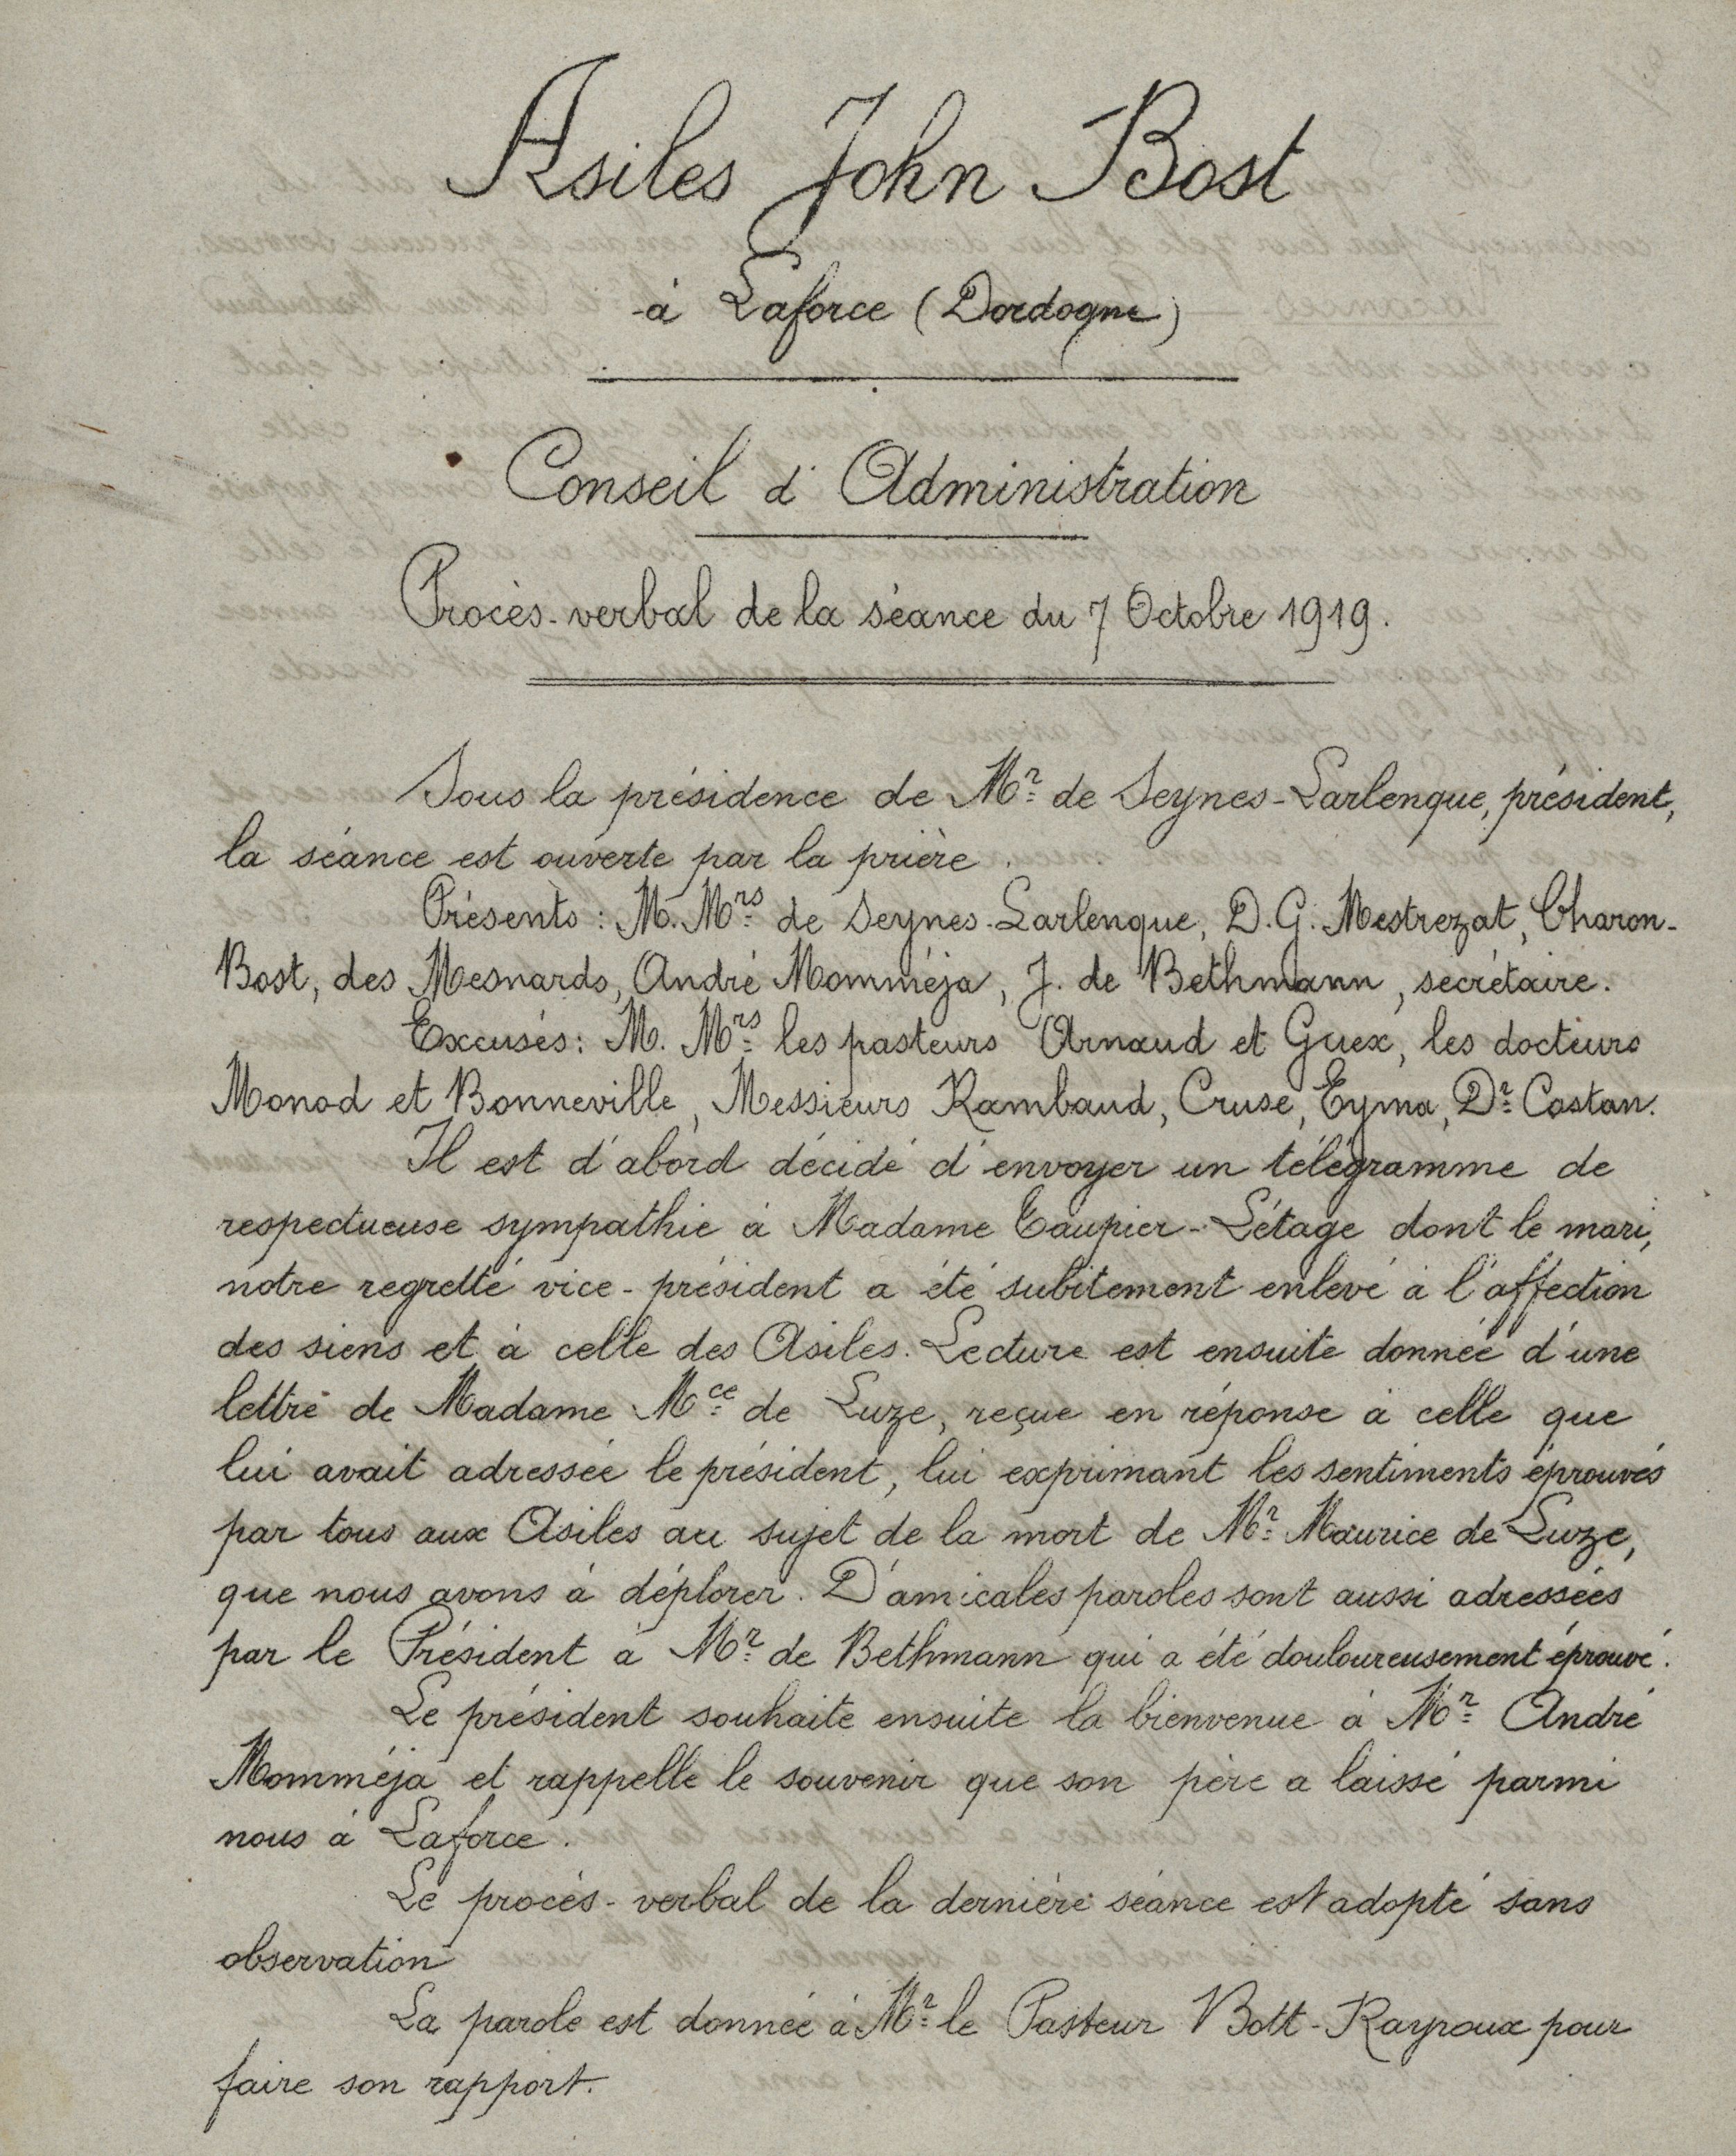 Asiles John Bost
à Laforce (Dordogne)
Conseil d'Administration
Procès-verbal de la séance du 7 Octobre 1919.
Sous la présidence de Mr de Seynes-Larlenque, président,
la séance est ouverte par la prière.
Présents : M. Mrs de Seynes-Larlenque, D. G. Mestrezat, Charon-
Bost, des Mesnards, André Momméja, J. de Bethmann, secrétaire.
Excusés : M. Mrs les pasteurs Arnaud et Guex, les docteurs
Monod et Bonneville, Messieurs Rambaud, Cruse, Eyma, Dr Castan.
Il est d'abord décidé d'envoyer un télégramme de
respectueuse sympathie à Madame Taupier-Létage dont le mari,
notre regretté vice-président a été subitement enlevé à l'affection
des siens et à celle des Asiles. Lecture est ensuite donnée d'une
lettre de Madame Mce de Luze, reçue en réponse à celle que
lui avait adressée le président, lui exprimant les sentiments éprouvés
par tous aux Asiles au sujet de la mort de Mr Maurice de Luze,
que nous avons à déplorer. D'amicales paroles sont aussi adressées
par le Président à Mr de Bethmann qui a été douloureusement éprouvé.
Le président souhaite ensuite la bienvenue à Mr André
Momméja et rappelle le souvenir que son père a laissé parmi
nous à Laforce.
Le procès-verbal de la dernière séance est adopté sans
observation
La parole est donnée à Mr le Pasteur Bott-Rayroux pour
faire son rapport.